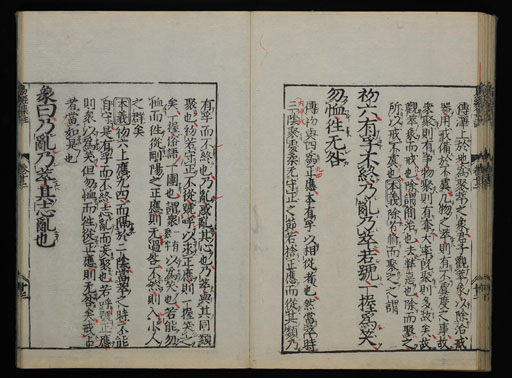 傳澤上於地為萃聚之象君子觀萃象以除治戎
器用戒備於不虞凡物之萃則有不虞度之事故
眾聚則有爭物聚則有奪大率既聚則多故矣故
觀萃象而戒也除謂簡治也去弊惡也除而聚之
所以戒不虞也本義除者脩而聚之之謂
初六有孚不終乃亂乃萃若號一握為笑
勿恤往无咎
傳初與四為正應本有孚以相從者也然當萃時
三陰聚處柔无守正之節若捨正應而從其類乃
有孚而不終也乃亂惑亂其心也乃萃與其同類
聚也初若守正不從號呼以求正應則一握笑之
矣一握俗語一團也謂眾以為笑也若能勿
恤而往從剛陽之正應則无過咎不然則入小人
之群矣
本義初六上應九四而隔於二陰當萃之時不能
自守是有孚而不終志亂而妄聚也若呼號正應
則眾以為笑但勿恤而往從正應則无咎矣戒占
者當如是也
象曰乃亂乃萃其志亂也